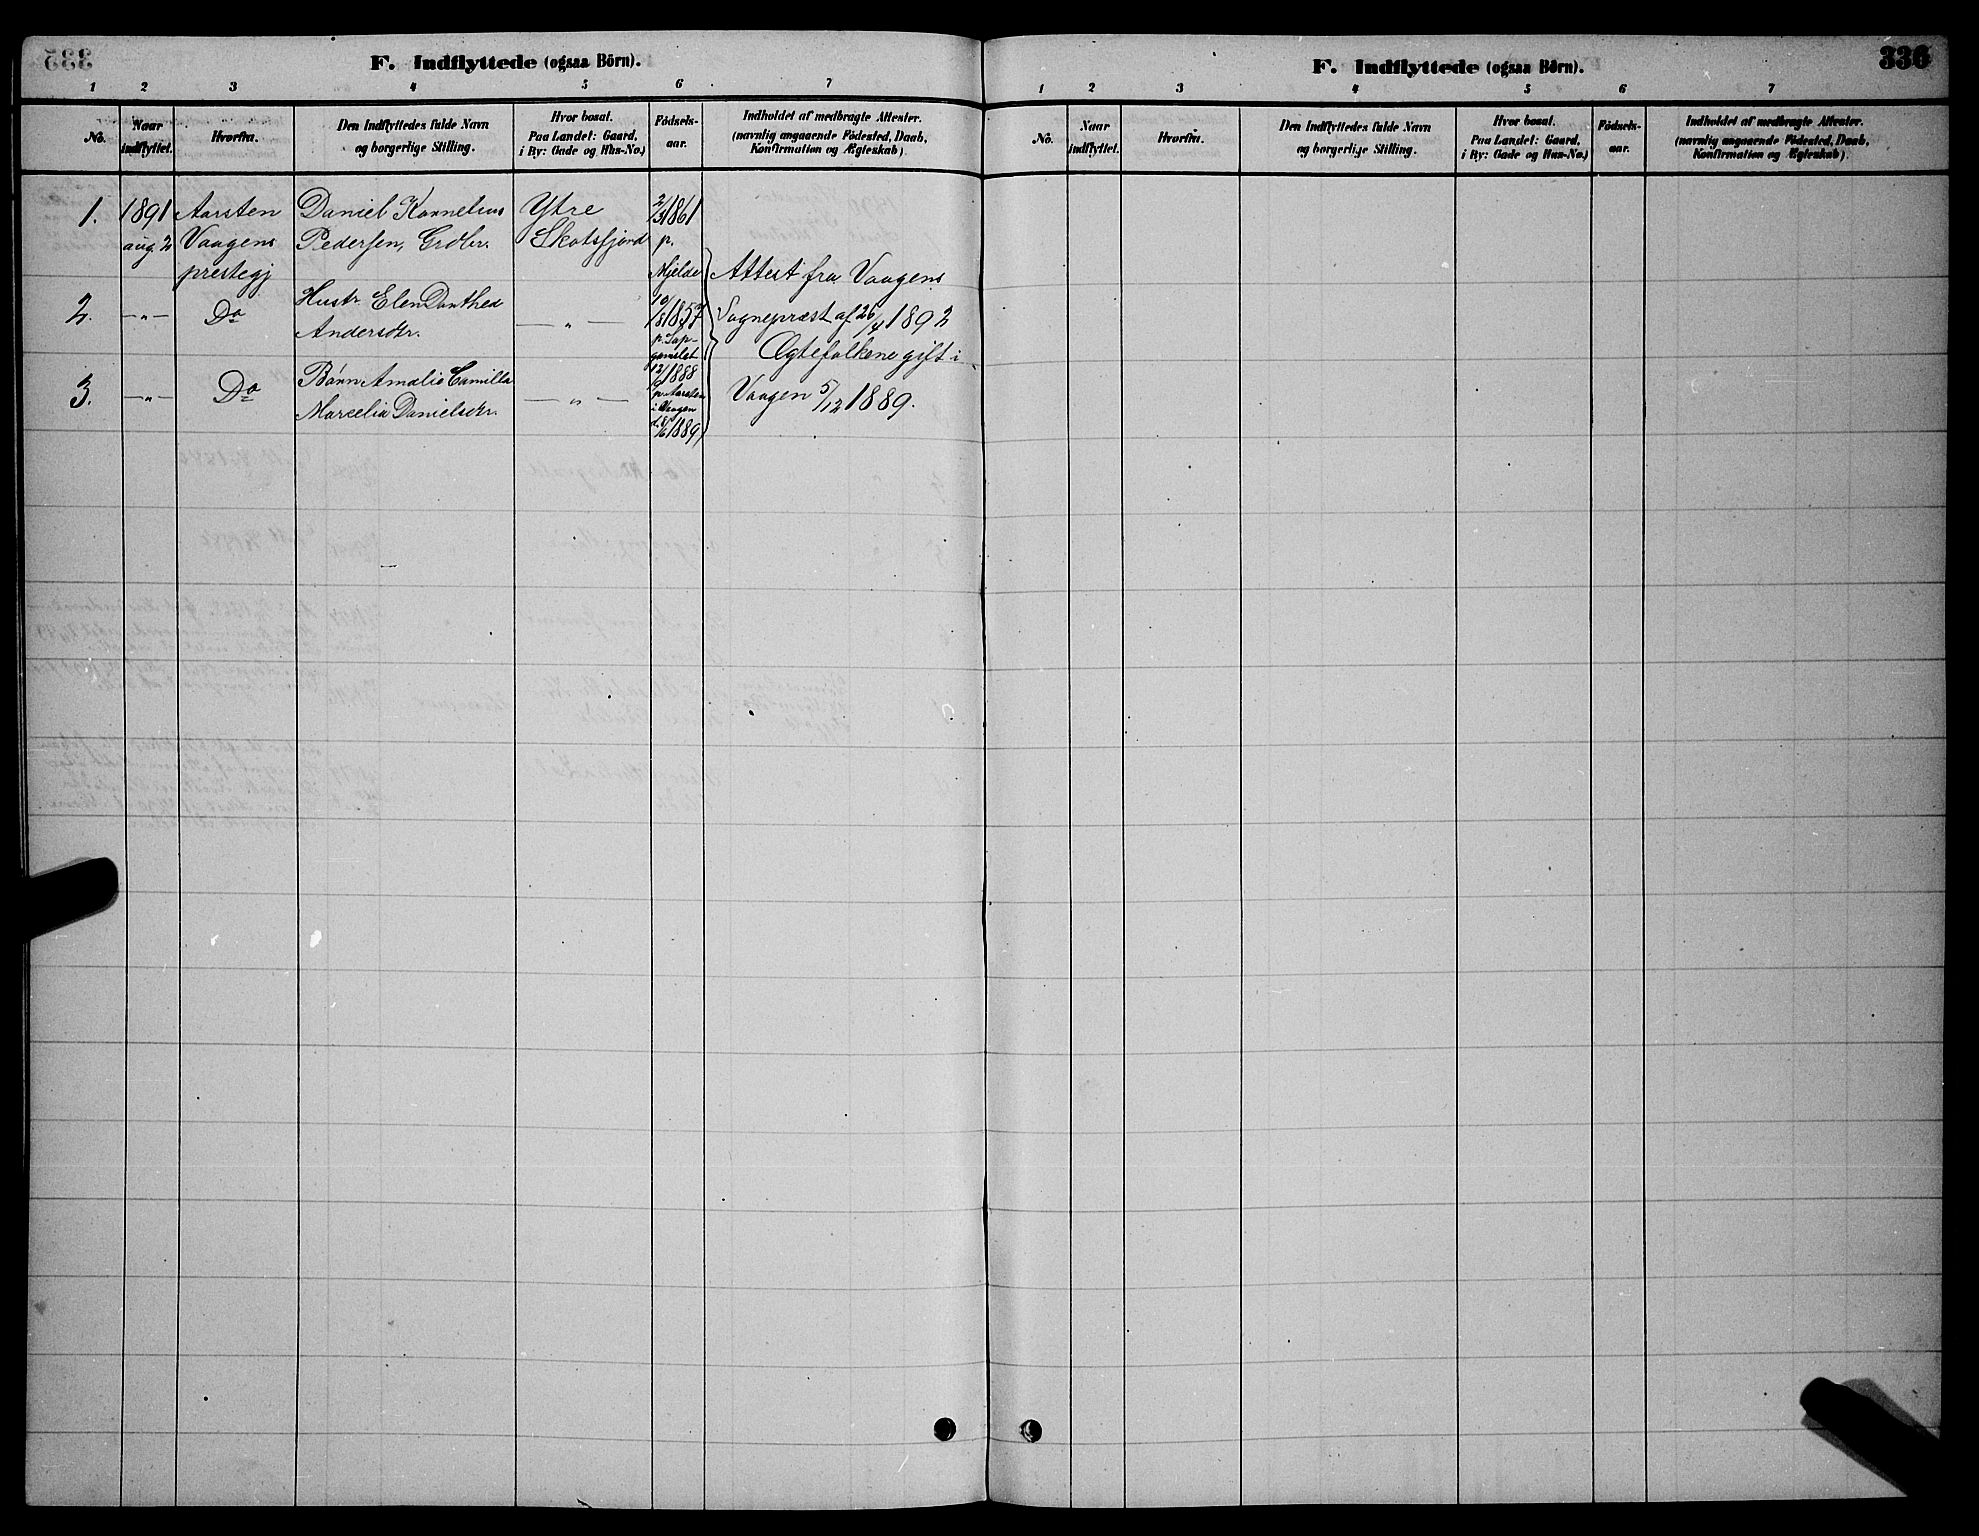 F. Indflyttede (ogsaa Börn).
1 2 3 4 5 6 7
No.
Naar
indflyttet.
Hvorfra.
Den Indflyttedes fulde Navn
og borgerlige Stilling.
Hvor bosat.
Paa Landet: Gaard,
i By: Gade og Hus-No.)
Födsels-
aar.
Indholdet af medbragte Attester.
(navnlig angaaende Födested, Daab,
Konfirmation og Ægteskab).
1. 1891 Aarsten Daniel Kornelius Ytre 2/3 1861
aug. 2 Vaagens Pedersen, Grdbr. Skotsfjord p.
prestegj Mjelde
2. —"— Do Hustr. Elen Dorthea —"— 10/8 1857
Andersdtr. p.
3. —"— Do Barn Amalie Camilla —"— 12/ 1888
Marcelia Danielsdtr. p. Aarsten
i Vaagen
d. 1889
Attest fra Vaagens
Sognepræst af 26/4 1892
Ægtefolkene gift i
Vaagen 5/12 1889.
336
F. Indflyttede (ogsaa Börn).
1 2 3 4 5 6 7
No.
Naar
indflyttet.
Hvorfra.
Den Indflyttedes fulde Navn
og borgerlige Stilling.
Hvor bosat.
Paa Landet: Gaard,
i By: Gade og Hus-No.)
Födsels-
aar.
Indholdet af medbragte Attester.
(navnlig angaaende Födested, Daab,
Konfirmation og Ægteskab).